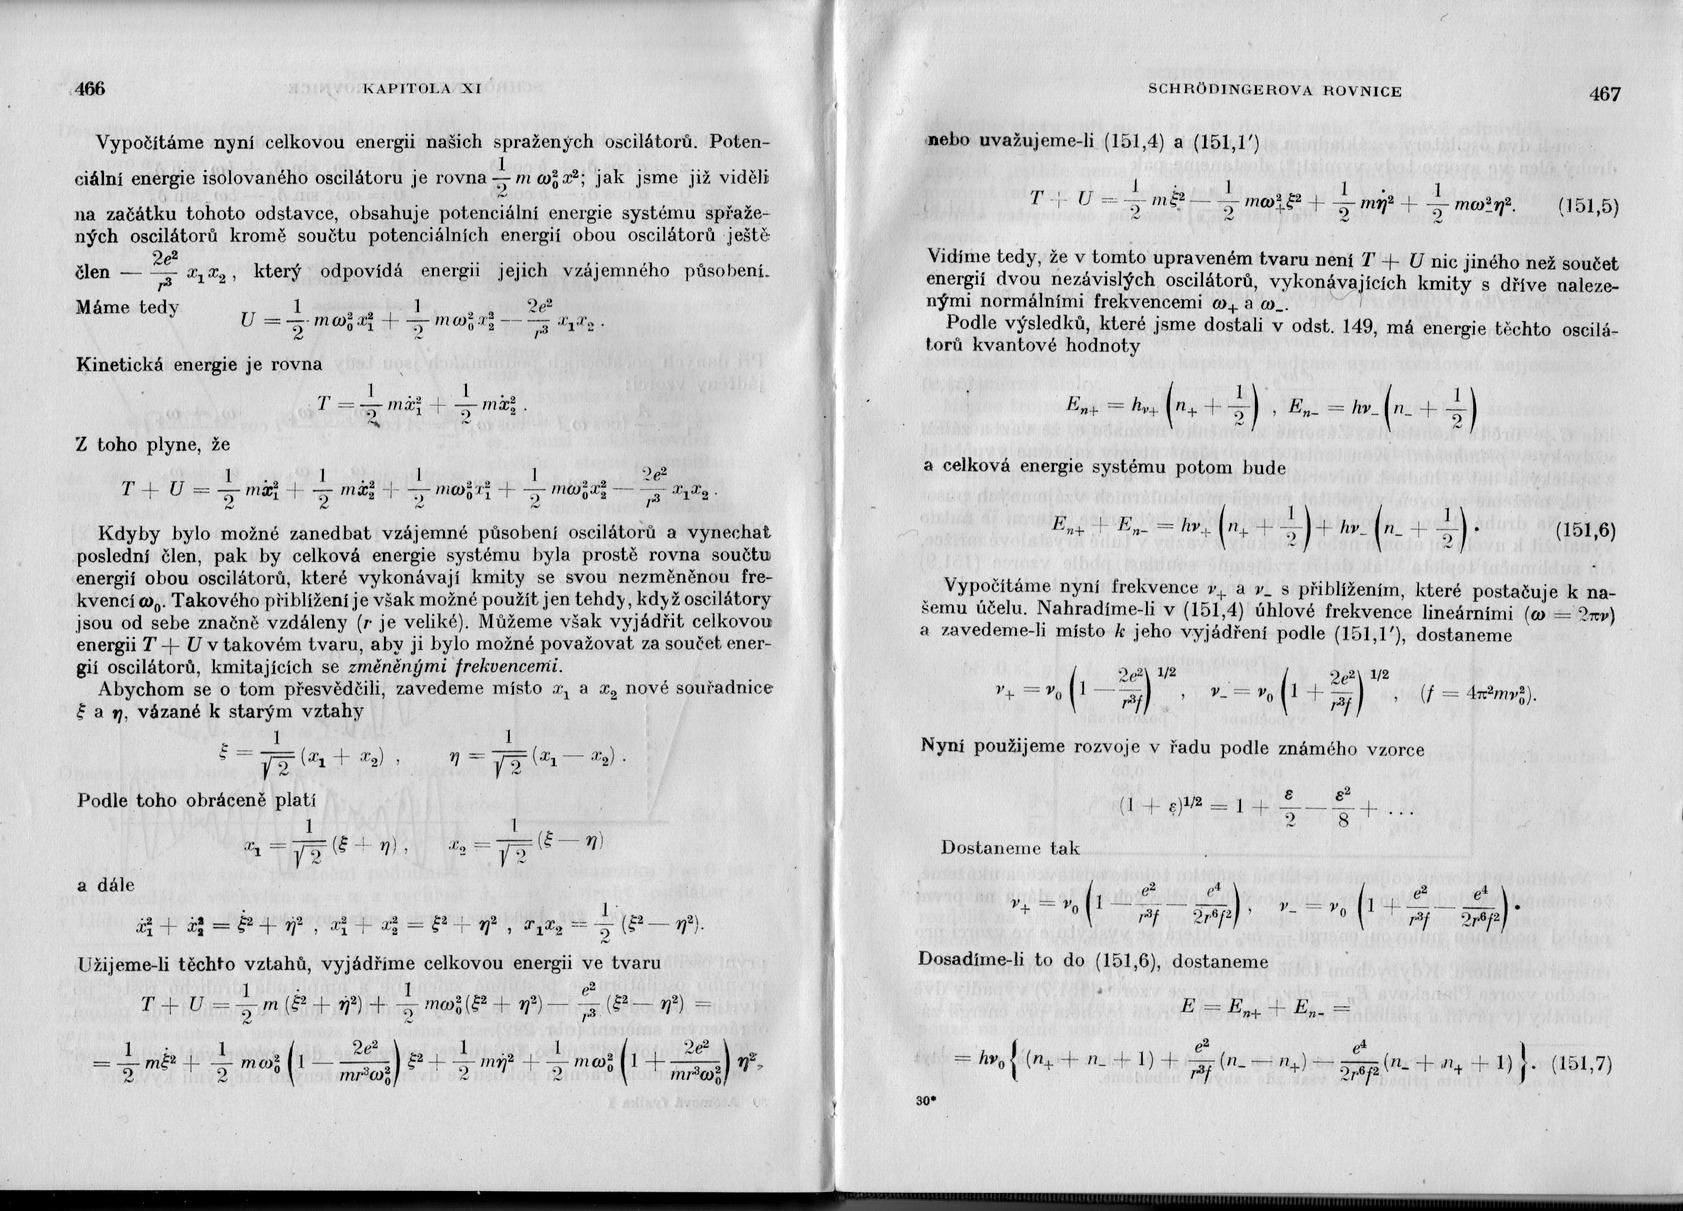 466
KAPITOLA XI
Vypočítáme nyní celkovou energii našich spražených oscilátorů. Poten-
ciální energie isolovaného oscilátoru je rovna 1/2 m ω₀² x²; jak jsme již viděli
na začátku tohoto odstavce, obsahuje potenciální energie systému spřaže-
ných oscilátorů kromě součtu potenciálních energií obou oscilátorů ještě
člen — 2e²/r³ x₁x₂ , který odpovídá energii jejich vzájemného působení.
Máme tedy
U = 1/2 mω₀²x₁² + 1/2 mω₀²x₂² — 2e²/r³ x₁x₂ .
Kinetická energie je rovna
T = 1/2 mẋ₁² + 1/2 mẋ₂² .
Z toho plyne, že
T + U = 1/2 mẋ₁² + 1/2 mẋ₂² + 1/2 mω₀²x₁² + 1/2 mω₀²x₂² — 2e²/r³ x₁x₂ .
Kdyby bylo možné zanedbat vzájemné působení oscilátorů a vynechat
poslední člen, pak by celková energie systému byla prostě rovna součtu
energií obou oscilátorů, které vykonávají kmity se svou nezměněnou fre-
kvencí ω₀. Takového přiblížení je však možné použít jen tehdy, když oscilátory
jsou od sebe značně vzdáleny (r je veliké). Můžeme však vyjádřit celkovou
energii T + U v takovém tvaru, aby ji bylo možné považovat za součet ener-
gií oscilátorů, kmitajících se změněnými frekvencemi.
Abychom se o tom přesvědčili, zavedeme místo x₁ a x₂ nové souřadnice
ξ a η, vázané k starým vztahy
ξ = 1/√2 (x₁ + x₂) , η = 1/√2 (x₁ — x₂) .
Podle toho obráceně platí
x₁ = 1/√2 (ξ + η) , x₂ = 1/√2 (ξ — η)
a dále
ẋ₁² + ẋ₂² = ξ̇² + η̇² , x₁² + x₂² = ξ² + η² , x₁x₂ = 1/2 (ξ² — η²).
Užijeme-li těchto vztahů, vyjádříme celkovou energii ve tvaru
T + U = 1/2 m (ξ̇² + η̇²) + 1/2 mω₀²(ξ² + η²) — e²/r³ (ξ² — η²) =
= 1/2 mξ̇² + 1/2 mω₀² (1 — 2e²/mr³ω₀²) ξ² + 1/2 mη̇² + 1/2 mω₀² (1 + 2e²/mr³ω₀²) η²,
SCHRÖDINGEROVA ROVNICE
467
nebo uvažujeme-li (151,4) a (151,1′)
T + U = 1/2 mξ̇² — 1/2 mω₊²ξ² + 1/2 mη̇² + 1/2 mω₋²η². (151,5)
Vidíme tedy, že v tomto upraveném tvaru není T + U nic jiného než součet
energií dvou nezávislých oscilátorů, vykonávajících kmity s dříve naleze-
nými normálními frekvencemi ω₊ a ω₋.
Podle výsledků, které jsme dostali v odst. 149, má energie těchto oscilá-
torů kvantové hodnoty
Eₙ₊ = hν₊ (n₊ + 1/2) , Eₙ₋ = hν₋ (n₋ + 1/2)
a celková energie systému potom bude
Eₙ₊ + Eₙ₋ = hν₊ (n₊ + 1/2) + hν₋ (n₋ + 1/2) . (151,6)
Vypočítáme nyní frekvence ν₊ a ν₋ s přiblížením, které postačuje k na-
šemu účelu. Nahradíme-li v (151,4) úhlové frekvence lineárními (ω = 2πν)
a zavedeme-li místo k jeho vyjádření podle (151,1′), dostaneme
ν₊ = ν₀ (1 — 2e²/r³f)^1/2 , ν₋ = ν₀ (1 + 2e²/r³f)^1/2 , (f = 4π²mν₀²).
Nyní použijeme rozvoje v řadu podle známého vzorce
(1 + ε)^1/2 = 1 + ε/2 — ε²/8 + ...
Dostaneme tak
ν₊ = ν₀ (1 — e²/r³f — e⁴/2r⁶f²) , ν₋ = ν₀ (1 + e²/r³f — e⁴/2r⁶f²) .
Dosadíme-li to do (151,6), dostaneme
E = Eₙ₊ + Eₙ₋ =
= hν₀ { (n₊ + n₋ + 1) + e²/r³f (n₋ — n₊) — e⁴/2r⁶f² (n₋ + n₊ + 1) } . (151,7)
30*